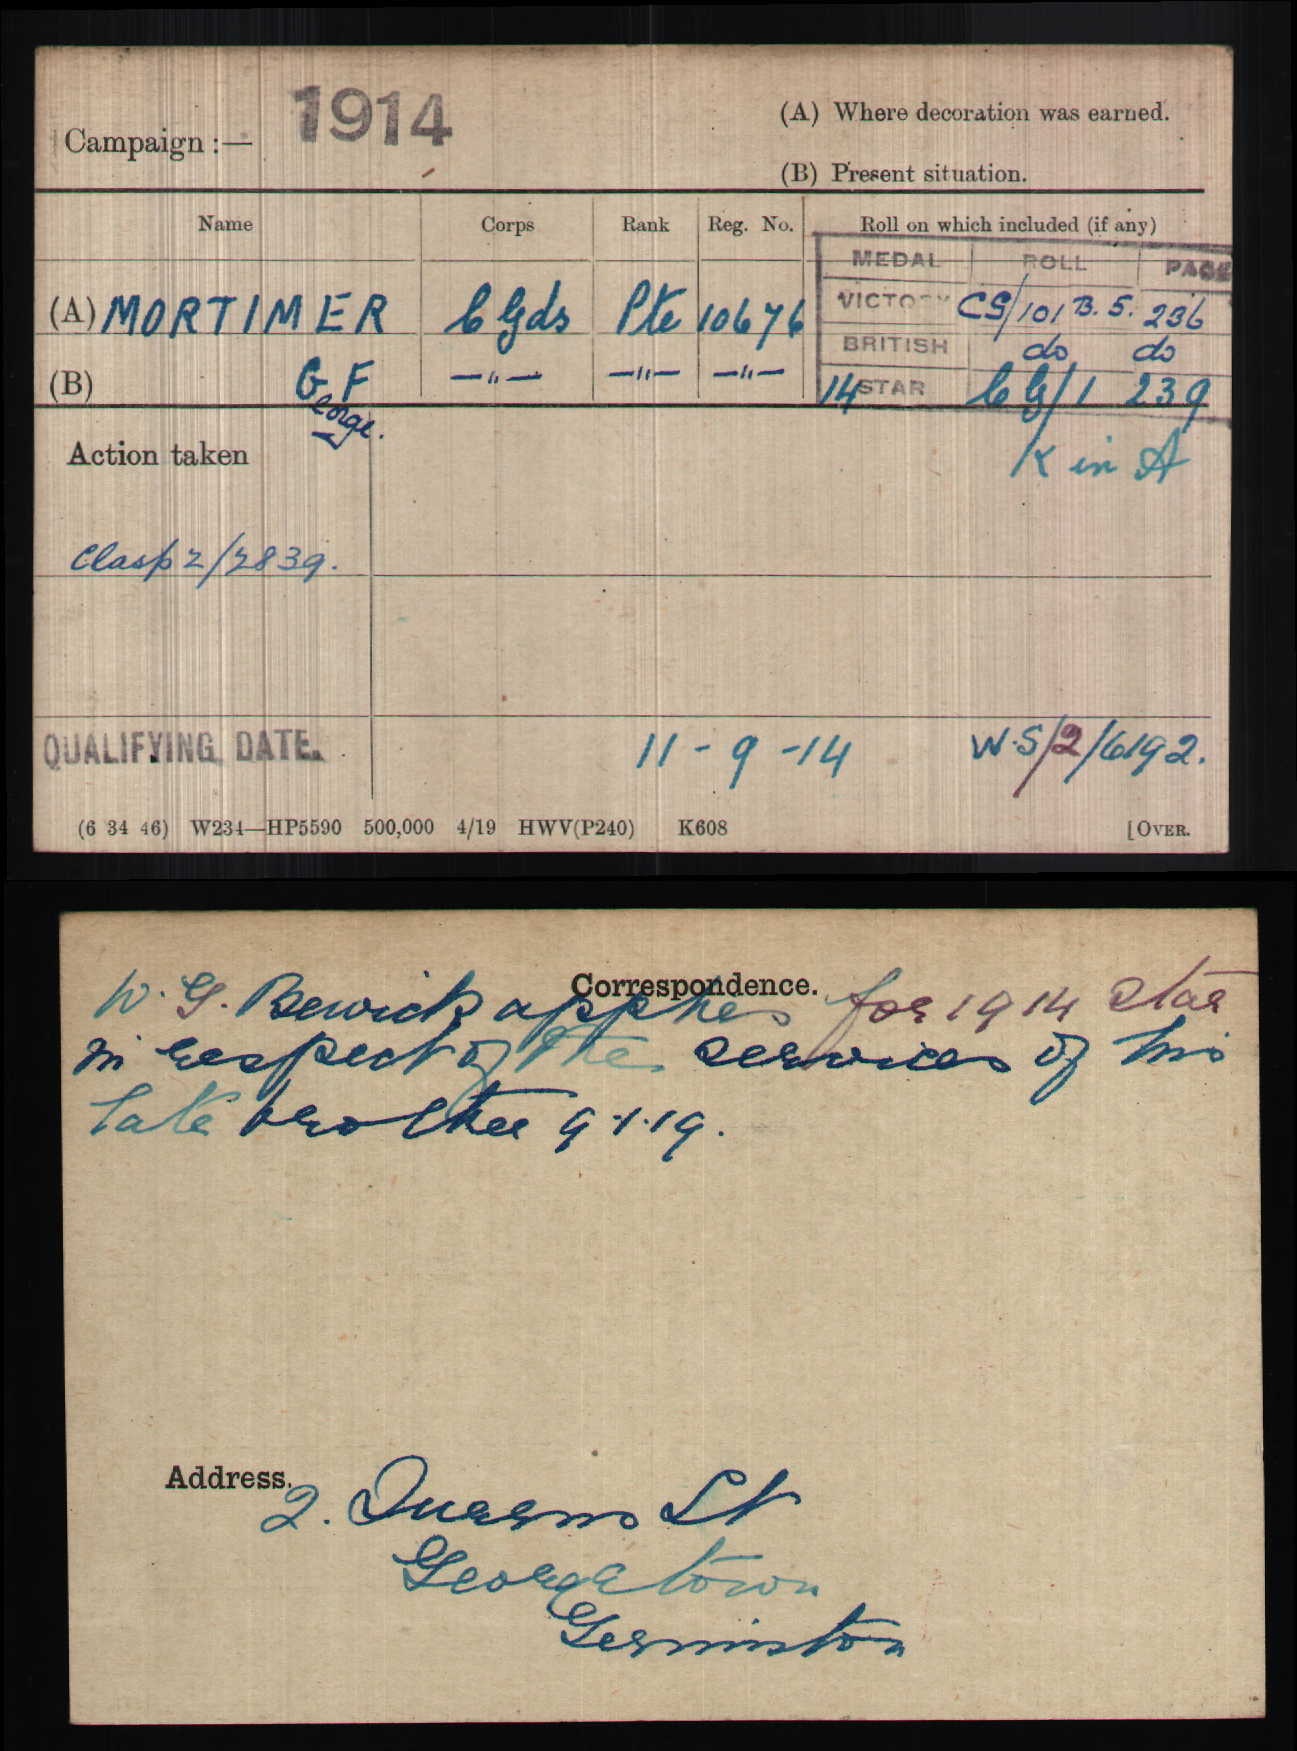 Campaign :— 1914
(A) Where decoration was earned.
(B) Present situation.
Name Corps Rank Reg. No. Roll on which included (if any)
MEDAL ROLL PAGE
(A) MORTIMER C Gds Pte 10676 VICTORY CG/101 B.5. 236
BRITISH do do
(B) G. F —〃— —〃— —〃— 14 STAR C G/1 239
eorge.
Action taken K in A
Clasp 2/7839.
QUALIFYING DATE. 11-9-14 W.S/2/6192.
(6 34 46) W234—HP5590 500,000 4/19 HWV(P240) K608 [OVER.
Correspondence.
W. G. Bewick applies for 1914 Star
in respect of the services of his
late brother 9.1.19.
Address.
2. Queens St
Georgetown
Germiston